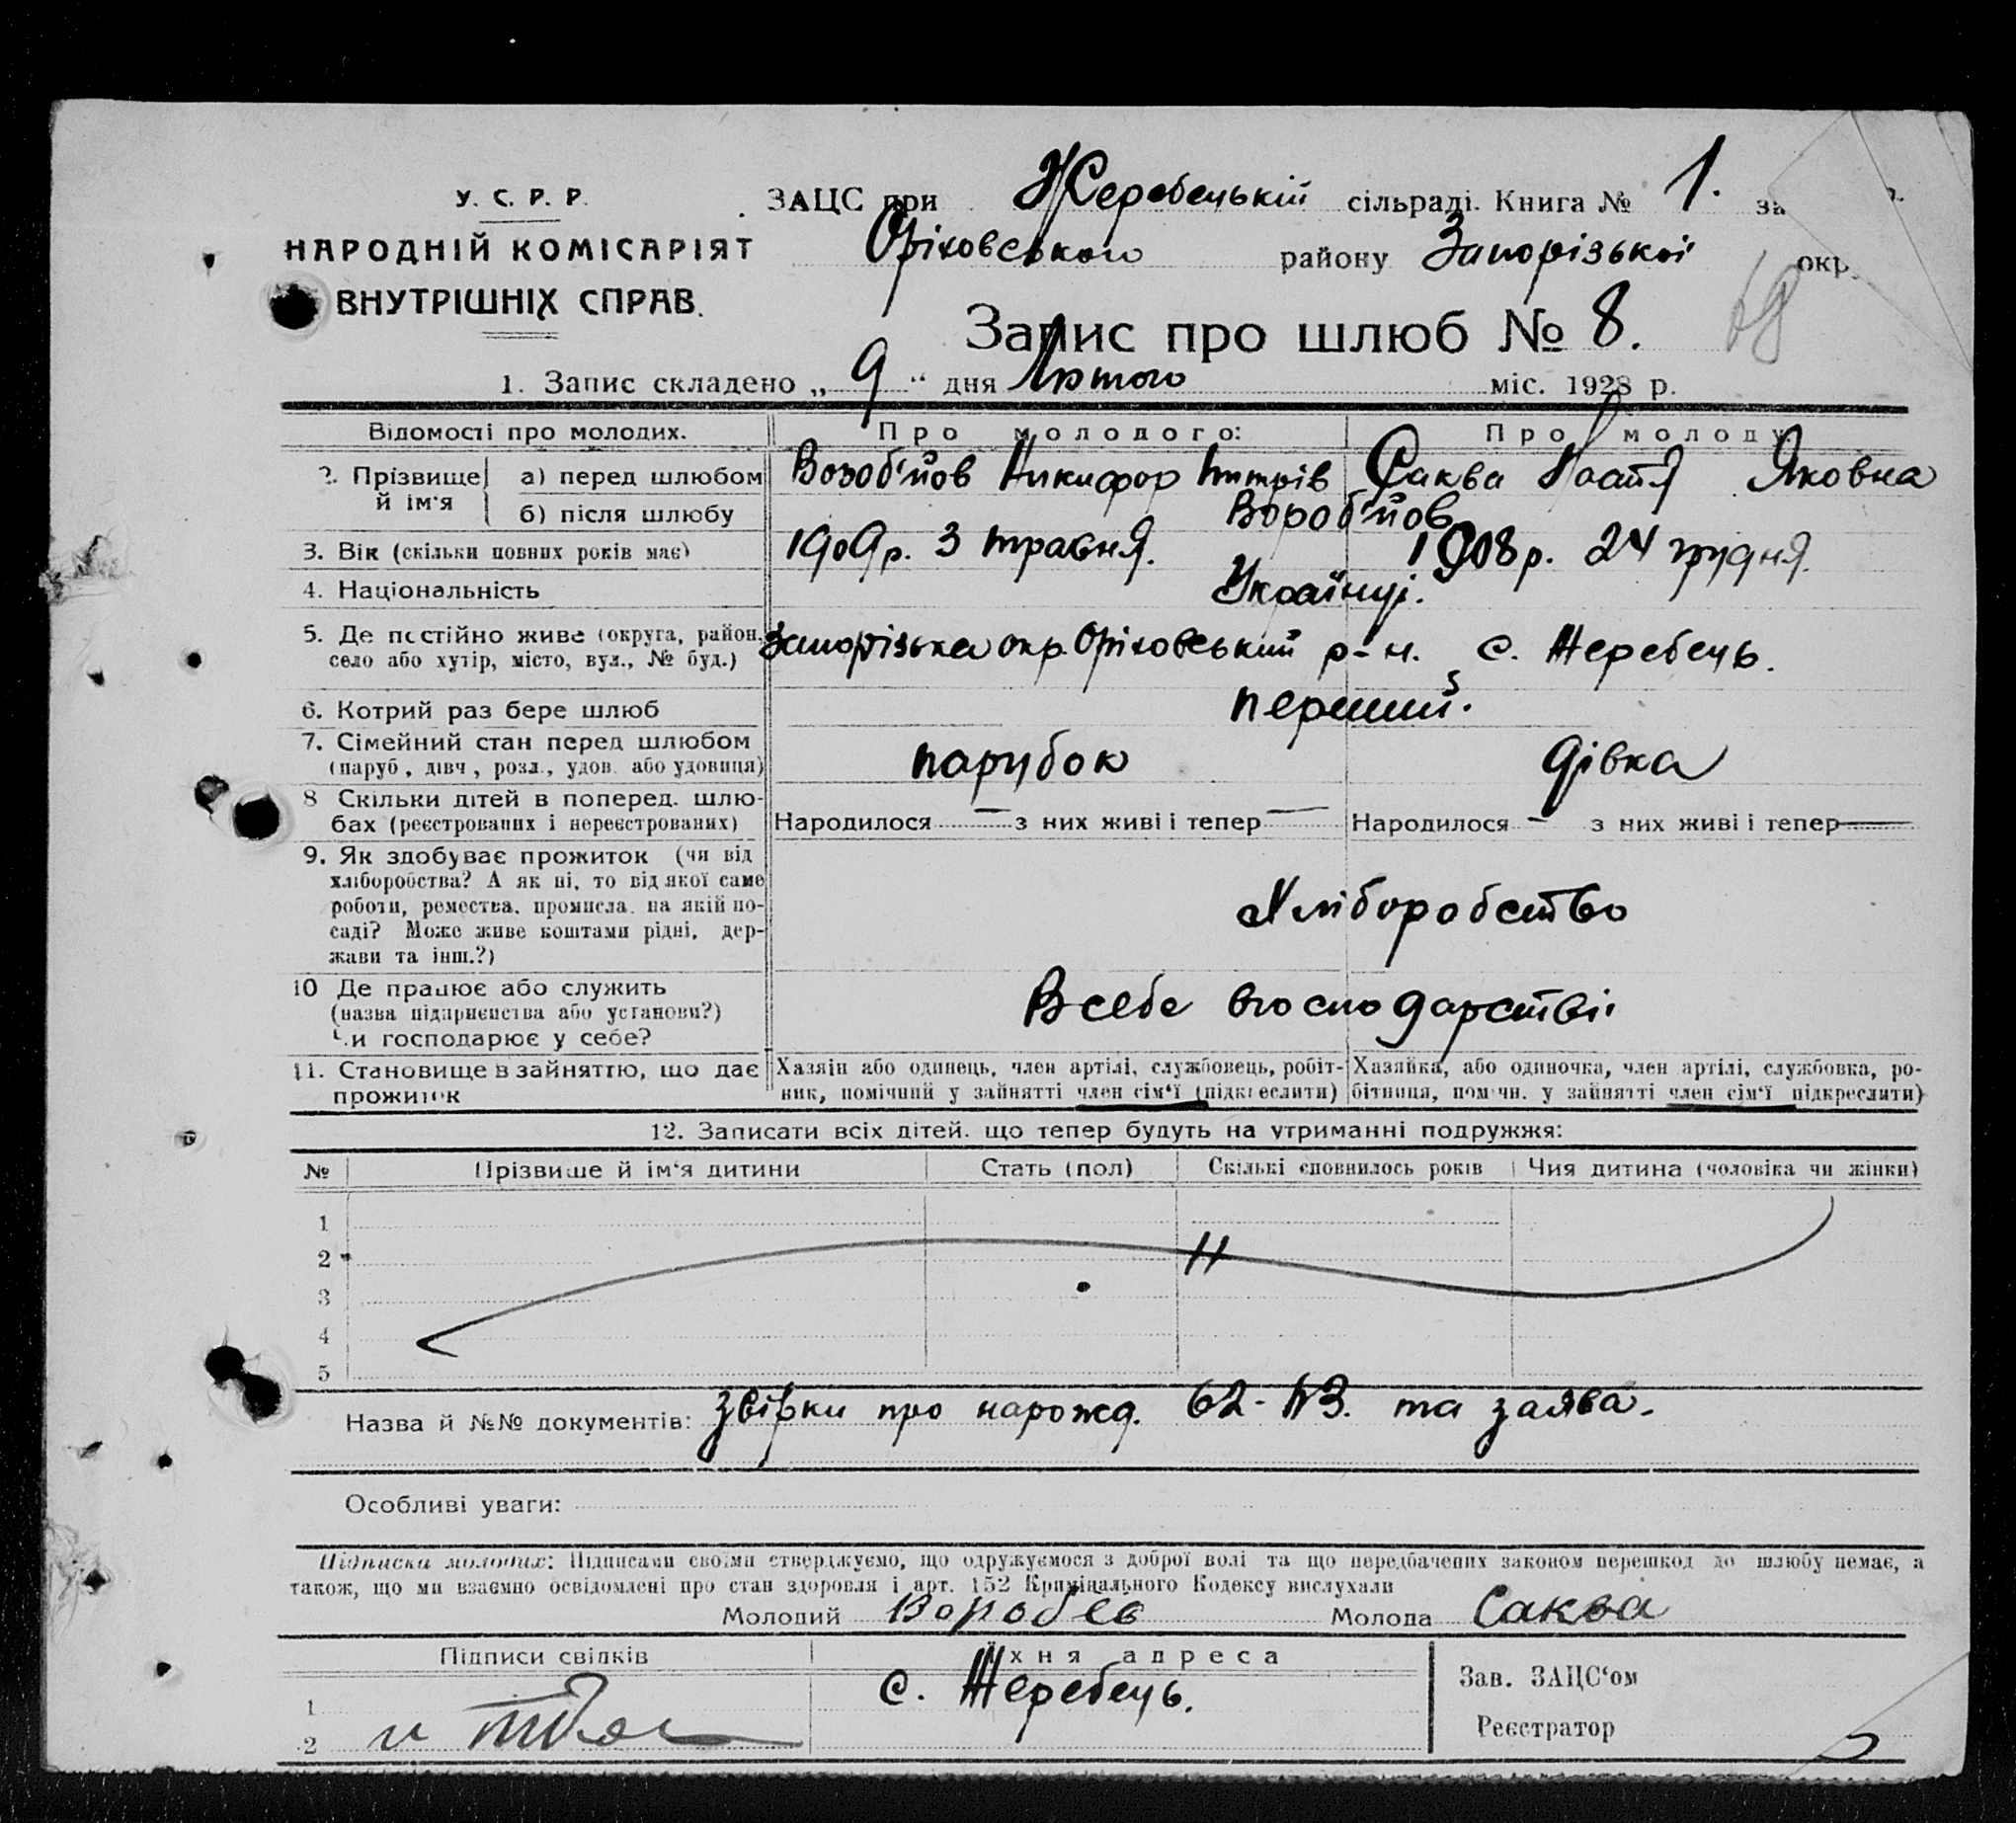 У. С. Р. Р.
НАРОДНІЙ КОМІСАРІЯТ
ВНУТРІШНІХ СПРАВ.
ЗАЦС при Жеребецькій сільраді. Книга № 1. за
Оріховського району Запорізької окр.
Запис про шлюб № 8.
68
1. Запис складено „ 9 “ дня Лютого міс. 1928 р.
Відомості про молодих. Про молодого: Про молоду
2. Прізвище й ім'я а) перед шлюбом Воробйов Никифор Саква Настя Яковна
б) після шлюбу Воробйов
3. Вік (скільки повних років має) 1909 р. 3 травня. 1908 р. 24 грудня
4. Національність Українці.
5. Де постійно живе (округа, район, Запорізька окр. Оріховський р-н. с. Жеребець.
село або хутір, місто, вул., № буд.)
6. Котрий раз бере шлюб перший.
7. Сімейний стан перед шлюбом парубок дівка
(паруб., дівч., розл., удов. або удовиця)
8 Скільки дітей в поперед. шлю-
бах (реєстрованих і нереєстрованих) Народилося — з них живі і тепер — Народилося — з них живі і тепер —
9. Як здобуває прожиток (чи від
хліборобства? А як ні, то від якої саме
роботи, ремества, промисла, на якій по-
саді? Може живе коштами рідні, дер-
жави та інш.?)
Хліборобство
10 Де працює або служить
(назва підприємства або установи?)
Чи господарює у себе?
Всебе вгосподарстві
11. Становище в зайняттю, що дає
прожиток
Хазяїн або одинець, член артілі, службовець, робіт-
ник, помічний у зайнятті член сім‘ї (підкреслити)
Хазяйка, або одиночка, член артілі, службовка, ро-
бітниця, помічн. у зайнятті член сім‘ї підкреслити)
12. Записати всіх дітей, що тепер будуть на утриманні подружжя:
№ Прізвище й ім‘я дитини Стать (пол) Скількі сповнилось років Чия дитина (чоловіка чи жінки)
1
2
3
4
5
Назва й №№ документів: звірки про нарожд. 62- та заява.
Особливі уваги:
Підписка молодих: Підписами своїми стверджуємо, що одружуємося з доброї волі та що передбачених законом перешкод до шлюбу немає, а
також, що ми взаємно освідомлені про стан здоровля і арт. 152 Кримінального Кодексу вислухали
Молодий Воробєв Молода Саква
Підписи свідків Їхня адреса
1 с. Жеребець.
2
Зав. ЗАЦС‘ом
Реєстратор